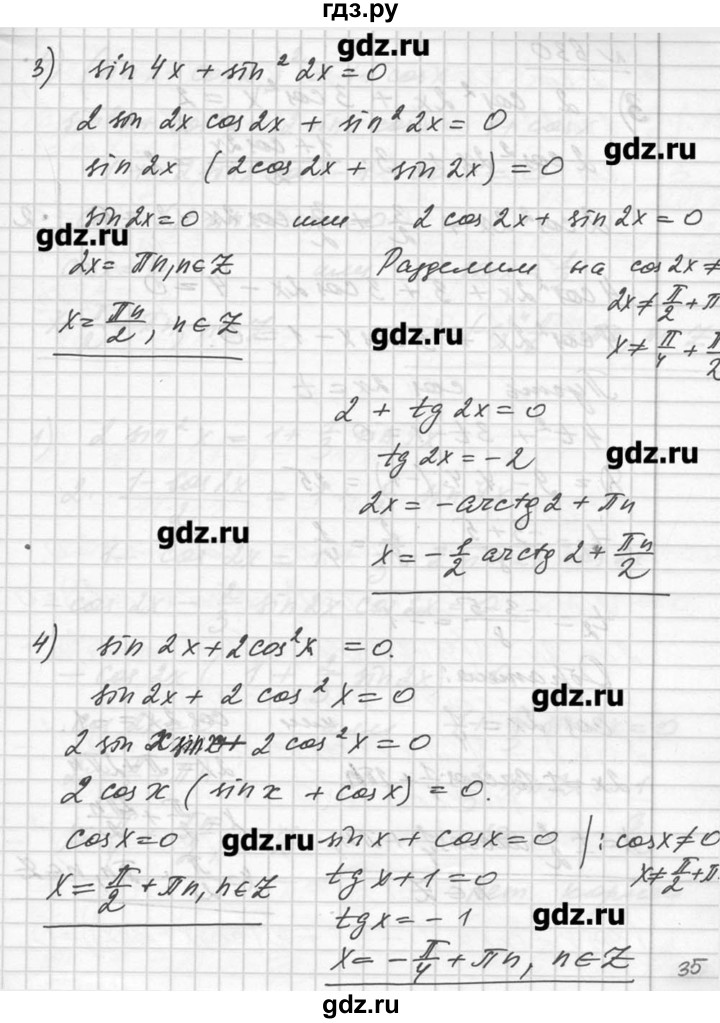 гдз.ру
gdz.ru
3) sin 4x + sin² 2x = 0
2 sin 2x cos 2x + sin² 2x = 0
gdz.ru
sin 2x (2cos 2x + sin 2x) = 0
sin 2x = 0 или 2 cos 2x + sin 2x = 0
gdz.ru
2x = πn, n∈Z Разделим на cos 2x ≠
2x ≠ π/2 + π
x = πn/2, n∈Z
gdz.ru
x ≠ π/4 + π/2
2 + tg 2x = 0
tg 2x = -2
gdz.ru
2x = -arctg 2 + πn
gdz.ru
x = -1/2 arctg 2 + πn/2
4) sin 2x + 2cos² x = 0.
sin 2x + 2 cos² x = 0
gdz.ru
2 sin x + 2 cos² x = 0
2 cos x (sin x + cos x) = 0.
cos x = 0 gdz.ru sin x + cos x = 0 | : cos x ≠ 0
x ≠ π/2 + π
x = π/2 + πn, n∈Z tg x + 1 = 0
tg x = -1
gdz.ru
x = -π/4 + πn, n∈Z
35
gdz.ru